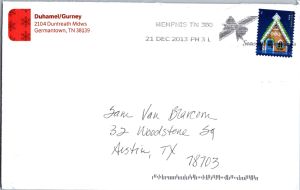 Duhamel/Gurney
2104 Dunfreath Mdws
Germantown, TN 38139
MEMPHIS TN 380
21 DEC 2013 PM 3 L
Sam Van Blarcom
32 Woodstone Sq
Austin, TX
78703